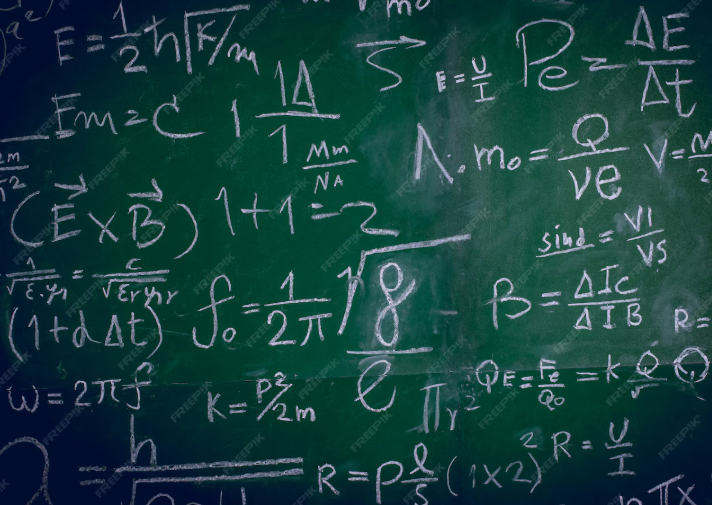 E = 1/2 ħ √K/m
S
E = U/I
Pe = ΔE/Δt
Em = C
1 1Δ/1
Mm/NA
m₀ = Q/νe
V = M/2
(E × B)
1 + 1 = 2
sind = V1/VS
1/√ε.μ₁ = c/√εrμr
(1 + d Δt)
f₀ = 1/2π √g/l
β = ΔIC/ΔIB
R =
ω = 2πf
K = P²/2m
πr²
QE = Fe/Q₀ = k Q/r
R = ρ l/S (1×2)
2 R = U/I